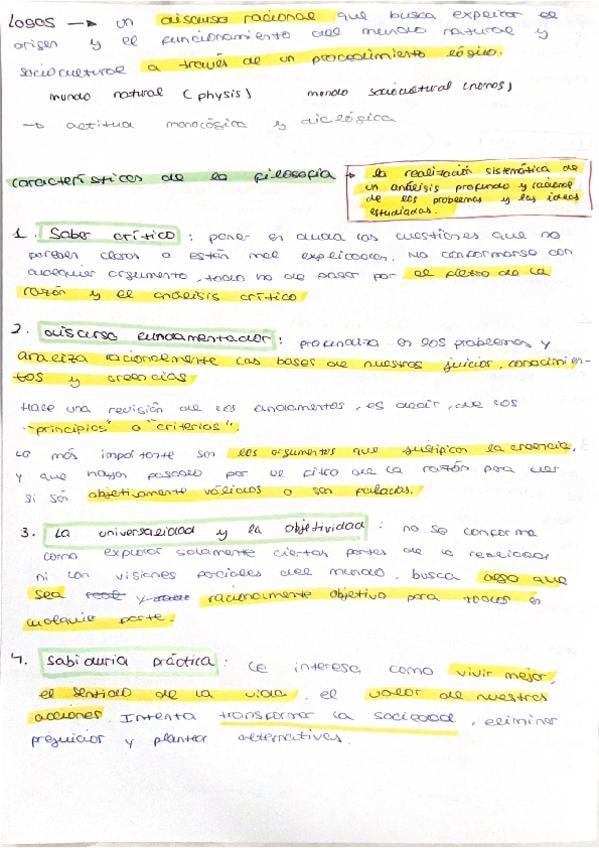 LOGOS → un discurso racional que busca explicar el
origen y el funcionamiento del mundo natural y
sociocultural a través de un procedimiento lógico.
mundo natural (physis) mundo sociocultural (nomos)
→ actitud monológica y dialógica
características de la filosofía → la realización sistemática de
un análisis profundo y racional
de los problemas y las ideas
estudiadas.
1. Saber crítico : poner en duda las cuestiones que no
parecen claras o están mal explicadas. No conformarse con
cualquier argumento, todo ha de pasar por el filtro de la
razón y el análisis crítico
2. discurso fundamentador : profundiza en los problemas y
analiza racionalmente las bases de nuestros juicios, conocimien-
tos y creencias
Hace una revisión de los fundamentos, es decir, de los
"principios" o "criterios".
Lo más importante son los argumentos que justifican la creencia,
y que hayan pasado por el filtro de la razón para ver
si son objetivamente válidos o son falacias.
3. La universalidad y la objetividad : no se conforma
como explorar solamente ciertas partes de la realidad
ni con visiones parciales del mundo. busca algo que
sea y racionalmente objetivo para todos en
cualquier parte.
4. Sabiduría práctica : le interesa como vivir mejor,
el sentido de la vida, el valor de nuestras
acciones. Intenta transformar la sociedad, eliminar
prejuicios y plantear alternativas.